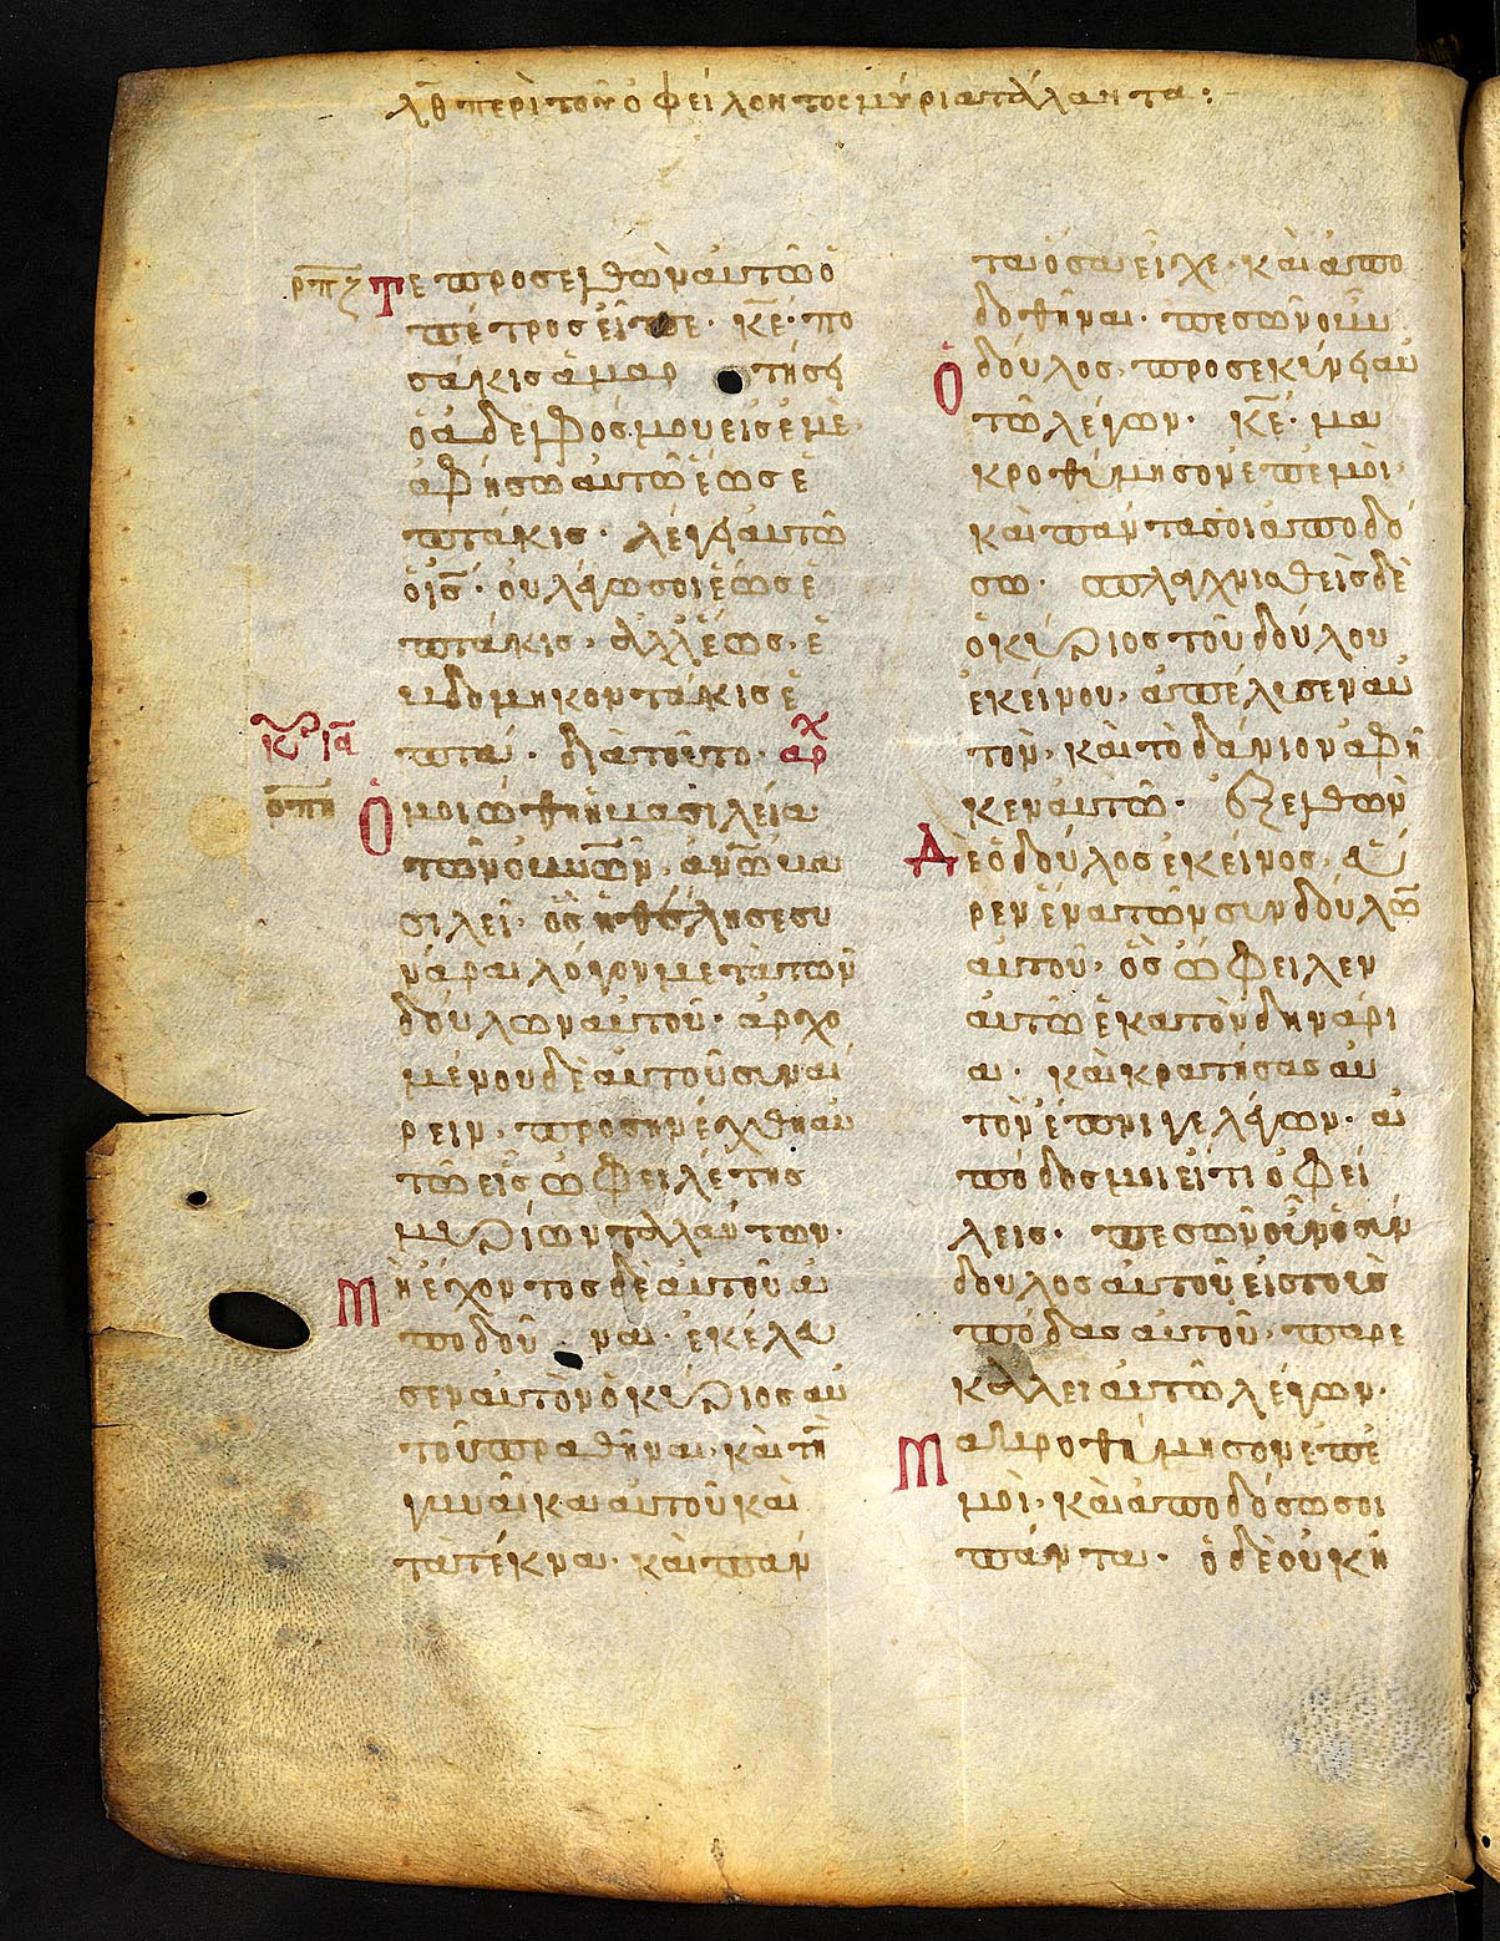 λθ περὶ τοῦ ὀφείλοντος μύρια τάλαντα:
ρπζ Τε προσελθὼν αὐτῶ ὁ
πέτρος εἶπε· κε· πο
σάκις ἁμαρτήσει
ὁ ἀδελφός μου εἰς ἐμὲ·
ἀφήσω αὐτῶ ἕως ἑ
πτάκις· λέγει αὐτῶ
ὁ ις· οὐ λέγω σοι ἕως ἑ
πτάκις· ἀλλ' ἕως ἑ
βδομηκοντάκις ἑ
κυ ια πτά· διὰ τοῦτο· αρχ
ρπη Ὁμοιώθη ἡ βασιλεία
τῶν οὐνῶν· ἀνω βα
σιλεῖ· ὃς ἠθέλησε συ
νᾶραι λόγον μετὰ τῶν
δούλων αὐτοῦ· ἀρχο
μένου δὲ αὐτοῦ συναί
ρειν· προσηνέχθη αὐ
τῶ εἷς ὠφειλέτης
μυρίων ταλάντων·
Μὴ ἔχοντος δὲ αὐτοῦ ἀ
ποδοῦναι· ἐκέλευ
σεν αὐτὸν ὁ κύριος αὐ
τοῦ πραθῆναι· καὶ τὴ
γυναῖκα αὐτοῦ καὶ
τὰ τέκνα· καὶ πάν
τα ὅσα εἶχε· καὶ ἀπο
δοθῆναι· πεσὼν οὖν
Ὁ δοῦλος· προσεκύνει αὐ
τῶ λέγων· κε· μα
κροθύμησον ἐπ' ἐμοὶ·
καὶ πάντα σοι ἀποδό
σω· σπλαγχνισθεὶς δὲ
ὁ κύριος τοῦ δούλου
ἐκείνου· ἀπέλυσεν αὐ
τὸν· καὶ τὸ δάνιον ἀφῆ
κεν αὐτῶ· ἐξελθὼν
Δὲ ὁ δοῦλος ἐκεῖνος· εὗ
ρεν ἕνα τῶν συνδούλω
αὐτοῦ· ὃς ὤφειλεν
αὐτῶ ἑκατὸν δηνάρι
α· καὶ κρατήσας αὐ
τὸν ἔπνιγε λέγων· ἀ
πόδος μοι εἴ τι ὀφεί
λεις· πεσὼν οὖν ὁ σύν
δουλος αὐτοῦ εἰς τοὺς
πόδας αὐτοῦ· παρε
κάλει αὐτῶ λέγων·
Μακροθύμησον ἐπ' ἐ
μοὶ· καὶ ἀποδόσω σοι
πάντα· ὁ δὲ οὐκ ἤ